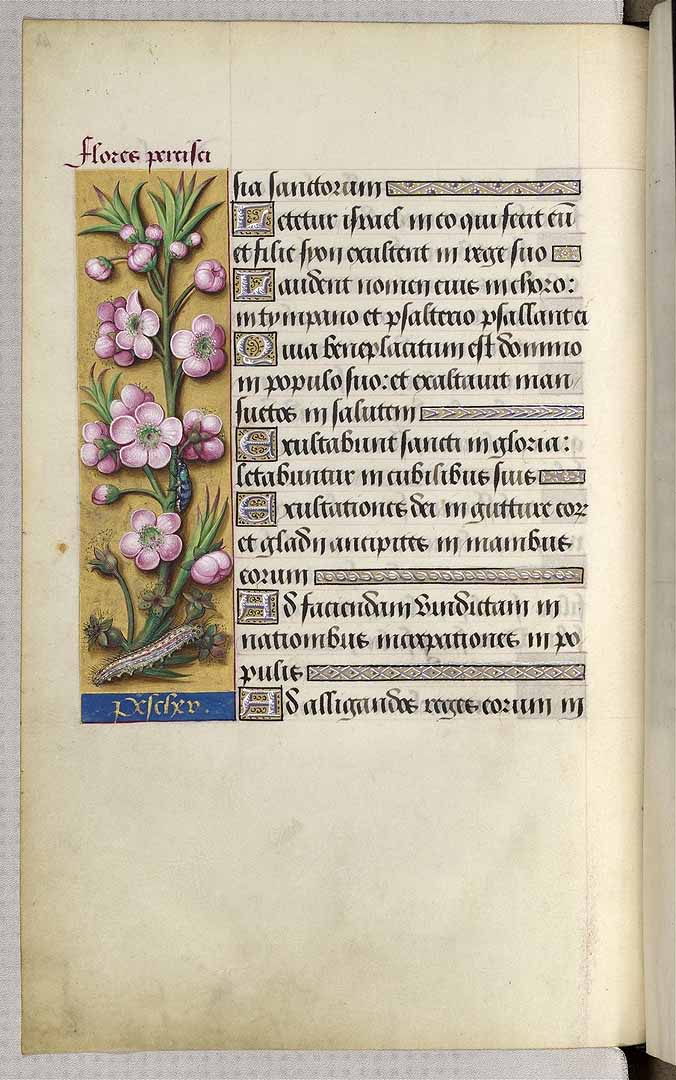 Flores persisci
sia sanctorum
Letetur israel in eo qui fecit eū
et filie syon exultent in rege suo
Laudent nomen eius in choro:
in tympano et psalterio psallant ei
Quia beneplacitum est domino
in populo suo: et exaltavit man
suetos in salutem
Exultabunt sancti in gloria:
letabuntur in cubilibus suis
Exultationes dei in gutture eorz
et gladii ancipites in manibus
eorum
Ad faciendam vindictam in
nationibus increpationes in po
pulis
Ad alligandos reges eorum in
pescher.